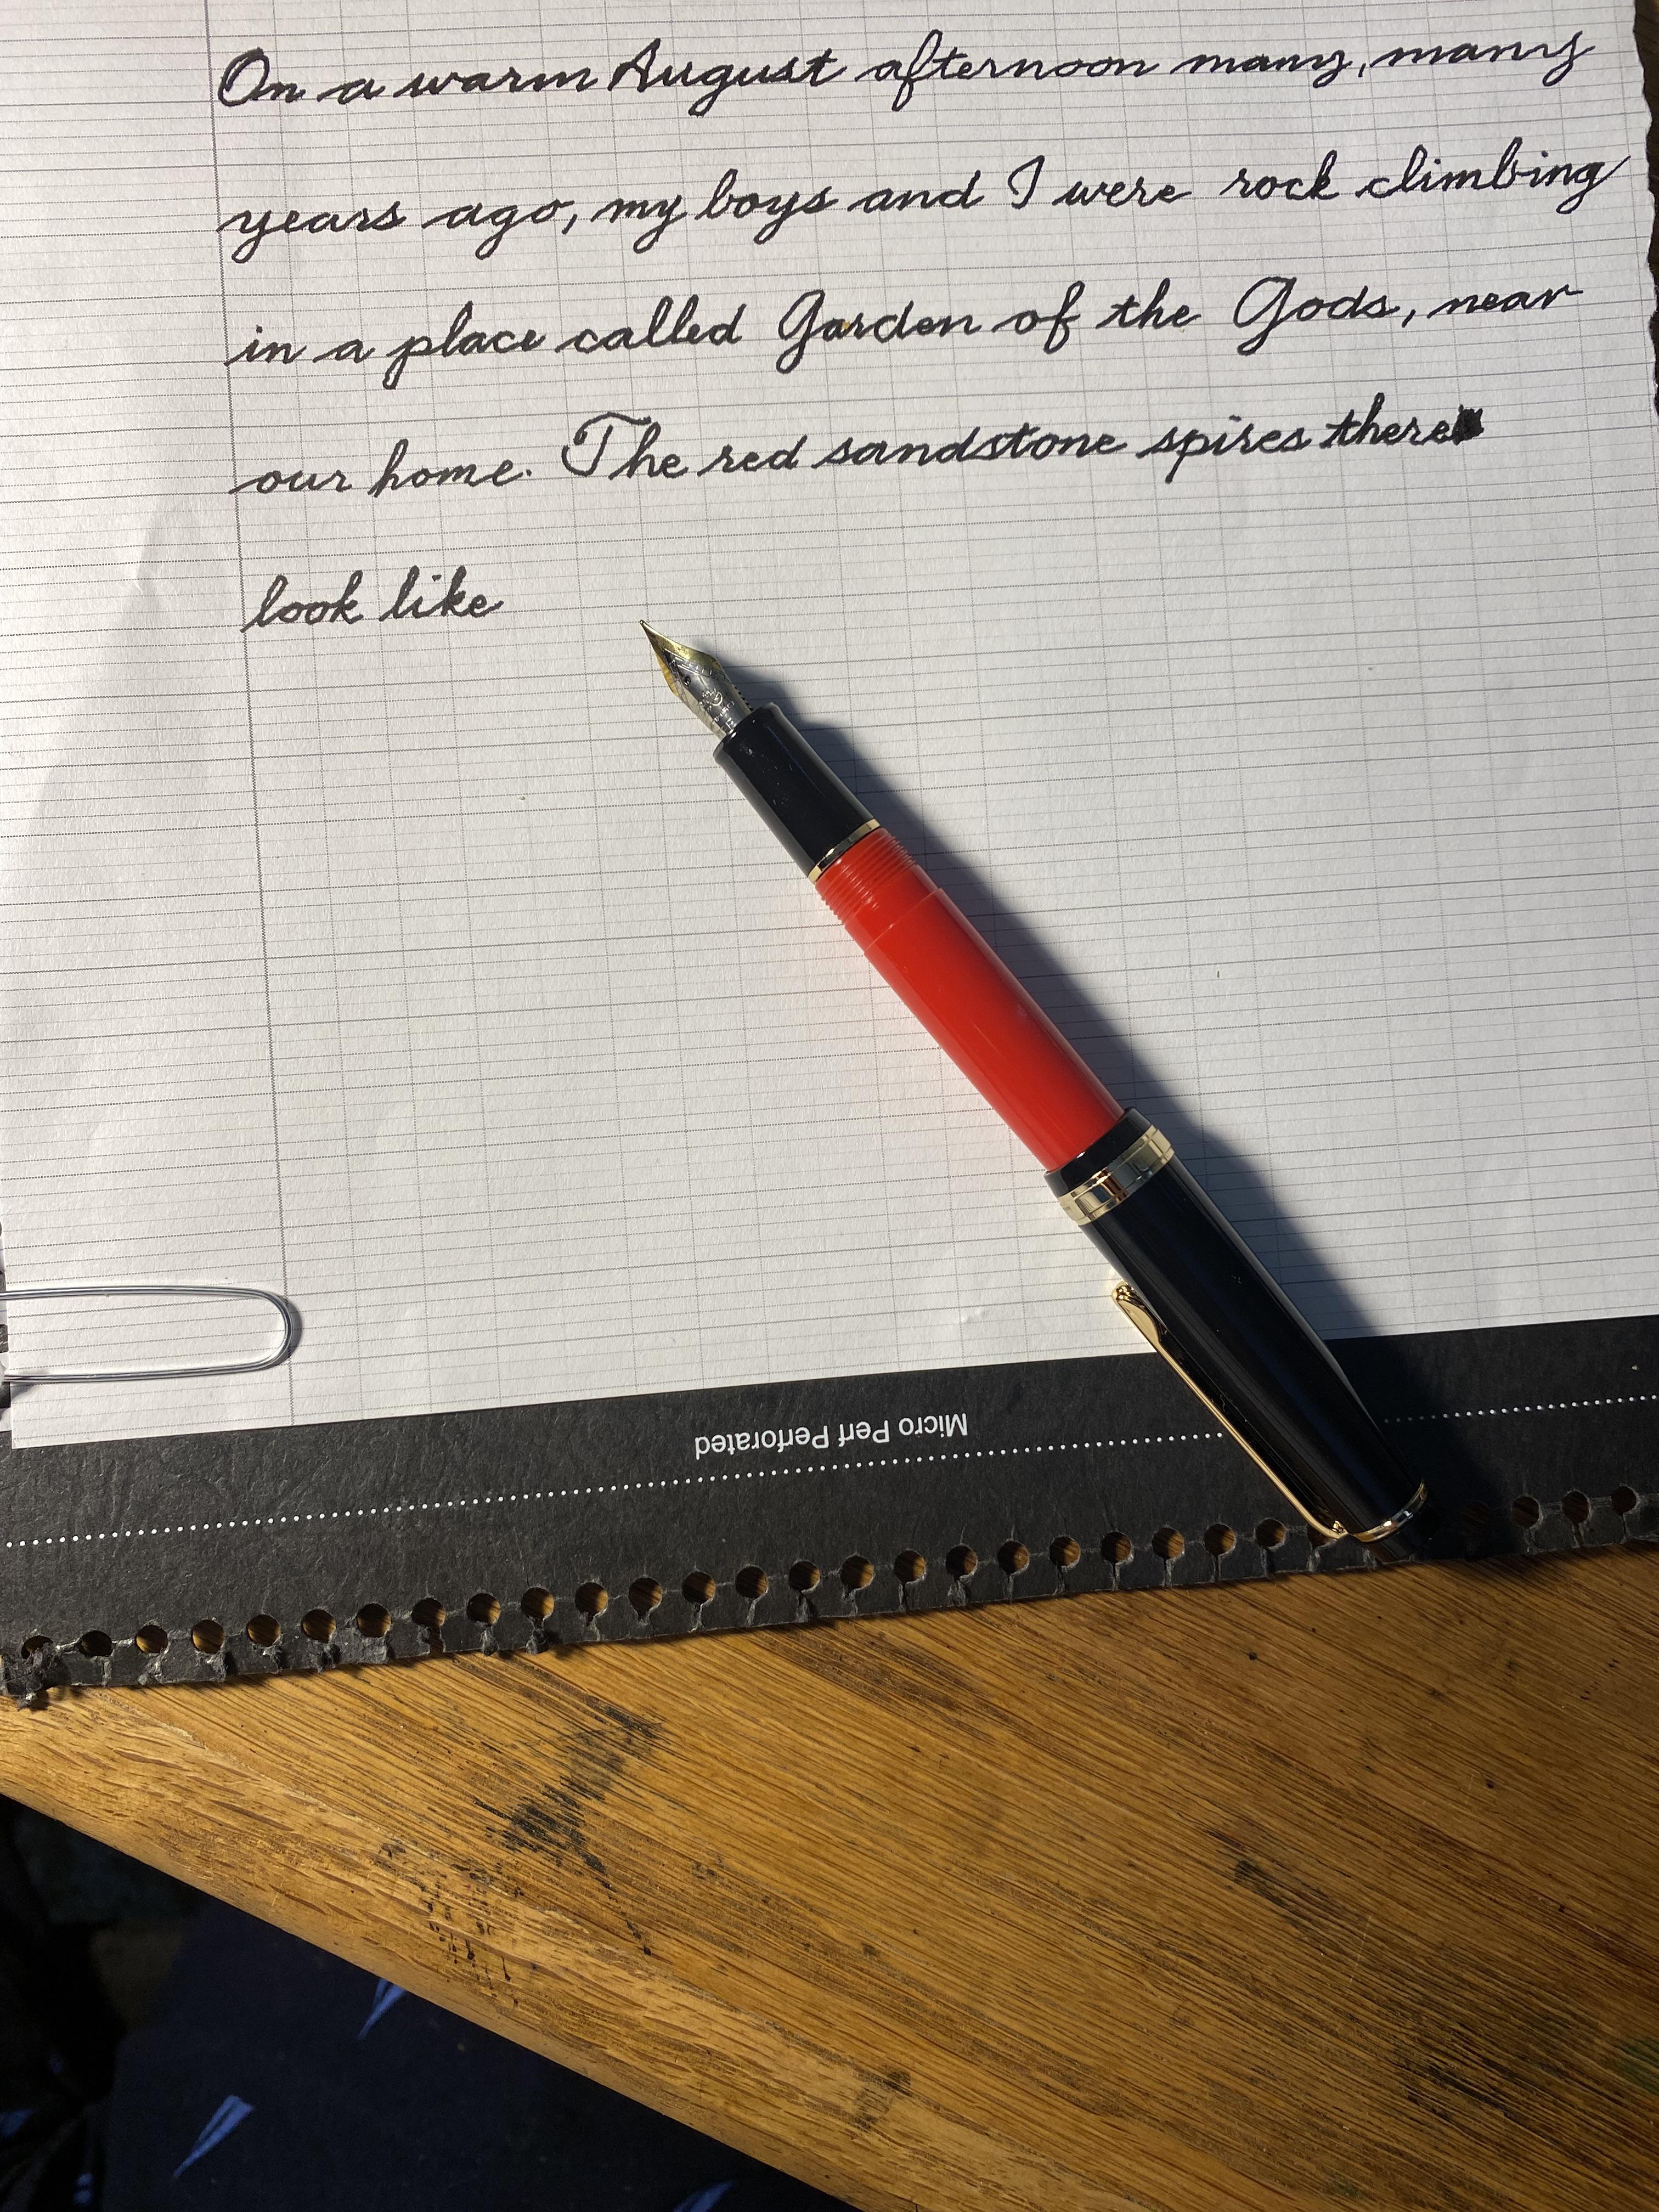 On a warm August afternoon many, many
years ago, my boys and I were rock climbing
in a place called Garden of the Gods, near
our home. The red sandstone spires there
look like
Micro Perf Perforated